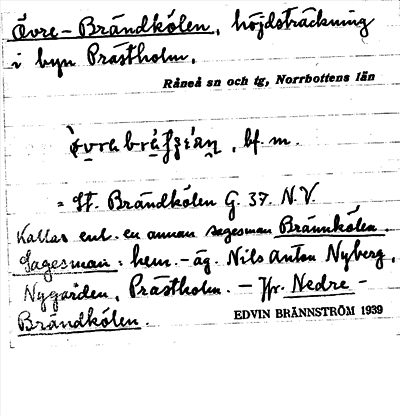 Övre-Brändkölen, höjdsträckning
i byn Prästholm.
Råneå sn och tg, Norrbottens län
, bf. m.
= St. Brändkölen G. 37. N.V.
Kallas enl. en annan sagesman Brännkölen.
Sagesman: hem.-äg. Nils Anton Nyberg,
Nygården, Prästholm. – Jfr. Nedre –
Brändkölen.
EDVIN BRÄNNSTRÖM 1939